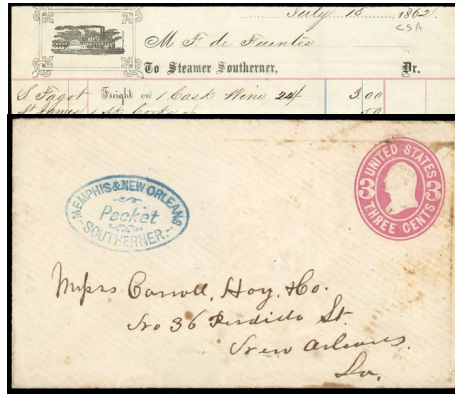 July 15 1862.
CSA
M F. de Fuentes
To Steamer Southerner, Dr.
S. Fagot Freight on 1 Cask Wine 24 3 00
St James 1 50
MEMPHIS & NEW ORLEANS
Packet
SOUTHERNER
UNITED STATES
3 3
THREE CENTS
Messrs Carroll, Hoy, & Co.
No 36 Perdido St.
New Orleans.
La.